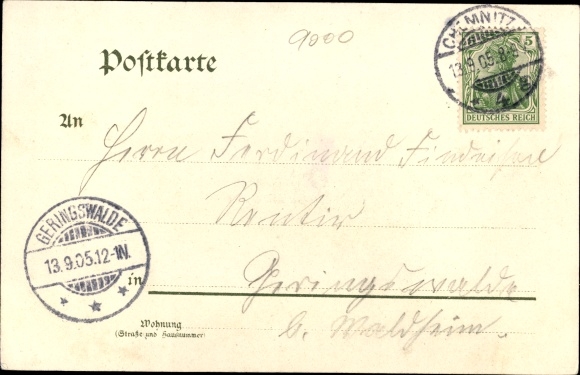 9000
Postkarte
CHEMNITZ
13.9.05.8-9
* 4 g
5
DEUTSCHES REICH
An
Herrn Ferdinand Findeisen
Rentier
GERINGSWALDE
13.9.05.12-1N.
* * *
in Geringswalde
b. Waldheim.
Wohnung
(Straße und Hausnummer)